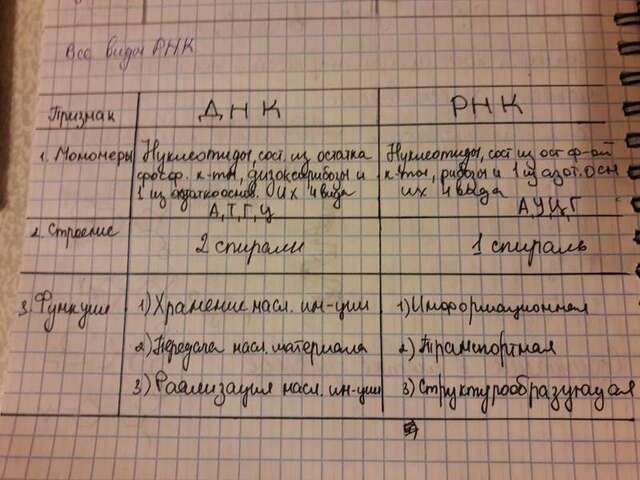 Все виды РНК
Признак
ДНК
РНК
1. Мономеры
Нуклеотиды, сост. из остатка
фосф. к-ты, дизоксирибозы и
1 из азаткооснов. Их 4 вида
А, Т, Г, Ц
Нуклеотиды, сост из ост ф-ой
к-ты, рибозы и 1 из азот. осн
их 4 выда
А, У, Ц, Г
2. Строение
2 спирали
1 спираль
3. Функции
1) Хранение насл. ин-ции
2) Передача насл. материала
3) Реализация насл. ин-ции
1) Информационная
2) Транспортная
3) Структурообразующая